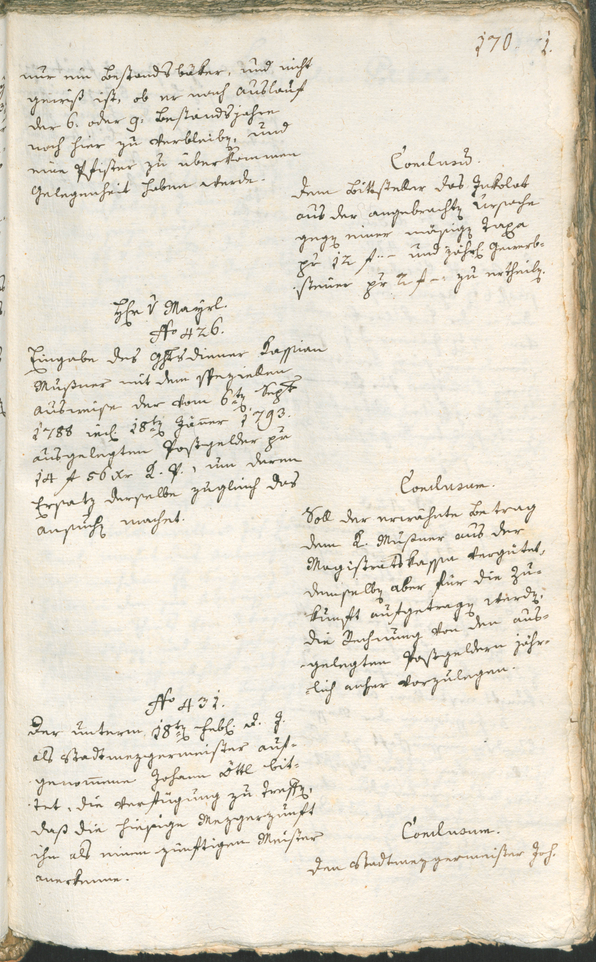 170.
1.
nur ein Bestandsbäker, und nicht
gewiß ist, ob er nach Auslauf
der 6. oder 9. Bestandsjahre
noch hier zu verbleiben, und
eine Pfister zu überkommen
Gelegenheit haben werde.
Conclusum.
dem Bittsteller das Inkolat
aus der angebrachten Ursache
gegen einer mäßigen Taxa
pr 12 f – und jährl Gewerb-
steuer pr 2 f – zu ertheilen.
H v Mayrl.
No 426.
Eingabe des Ghtsdiener Kassian
Mußner mit dem speziellen
Ausweise der vom 6ten Sept
1788 incl 18ten Jänner 1793.
ausgelegten Postgelder pr
14 f 56 xr K. P., um deren
Ersatz derselbe zugleich das
Ansuchen machet.
Conclusum.
Soll der erwähnte Betrag
dem K. Mußner aus der
Magistratskassa vergütet,
demselben aber für die Zu-
kunft aufgetragen werden,
die Rechnung von den aus-
gelegten Postgeldern jähr-
lich anher vorzulegen.
No 431.
Der unterm 18ten Febr. d. J.
als Stadtmezgermeister auf-
genommene Johann Öttl bit-
tet, die Verfügung zu treffen,
daß die hiesige Mezgerzunft
ihn als einen zünftigen Meister
anerkenne.
Conclusum.
Den Stadtmezgermeister Joh.